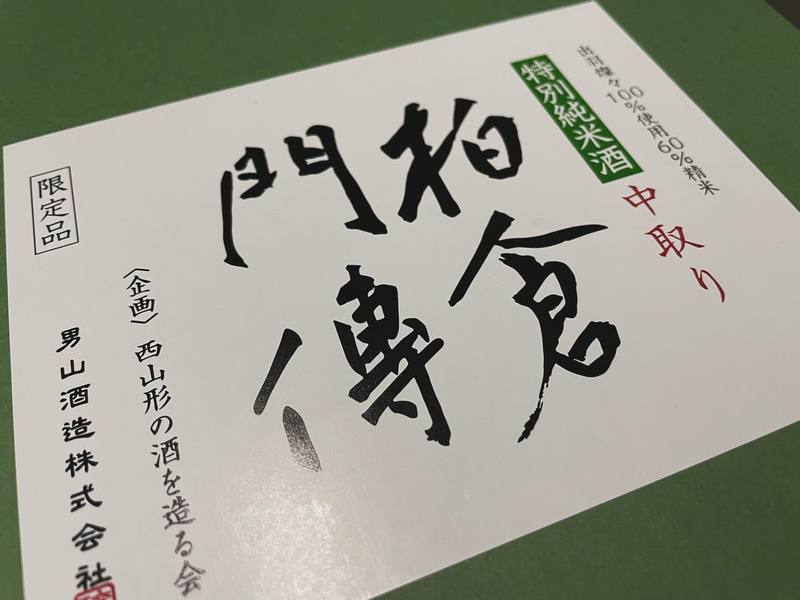 出羽燦々100%使用60%精米
特別純米酒
中取り
柏倉
門傳
限定品
〈企画〉西山形の酒を造る会
男山酒造株式会社